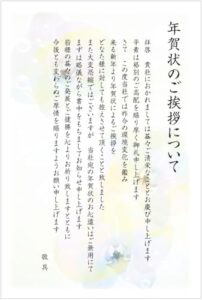 年賀状のご挨拶について
拝啓 貴社におかれましては益々ご清栄のこととお慶び申し上げます
平素は格別のご高配を賜り厚く御礼申し上げます
さて この度当社では昨今の環境変化を鑑み
来る新年より年賀状によるご挨拶を
どなた様に対しても控えさせて頂くことと致しました
また大変恐縮ではございますが 当社宛の年賀状のお心遣いはご無用にて
まずは略儀ながら書中をもちましてお知らせ申し上げます
皆様の益々のご発展とご健勝を心よりお祈り致しますとともに
今後とも変わらぬご厚情を賜りますようお願い申し上げます
敬具